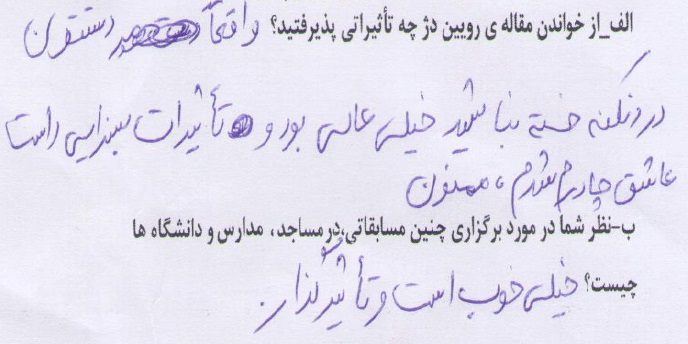 الف_از خواندن مقاله ی رویین دژ چه تأثیراتی پذیرفتید؟ واقعاً دستتون
درد نکنه خسته نباشید خیلی عالی بود و تأثیرات بسزایی داشت
عاشق چادرم شدم، ممنون
ب-نظر شما در مورد برگزاری چنین مسابقاتی،در مساجد، مدارس و دانشگاه ها
چیست؟ خیلی خوب است و تأثیرگذار.